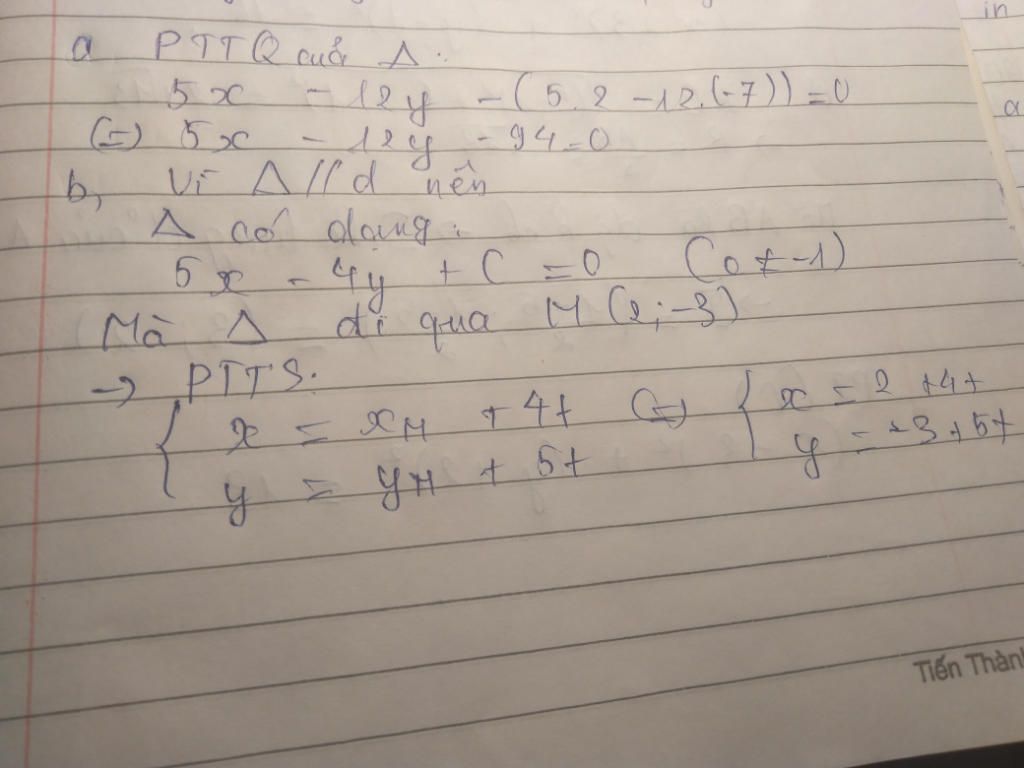 in
a PTTQ của Δ.
5x - 12y - (5.2 - 12.(-7)) = 0
(=) 5x - 12y - 94 = 0
a
b, Vì Δ // d nên
Δ có dạng.
5x - 4y + C = 0 (0 ≠ -1)
Mà Δ đi qua M (2; -3)
→ PTTS.
{ x = xM + 4t (=) { x = 2 + 4t
y = yM + 5t y = -3 + 5t
Tiến Thành